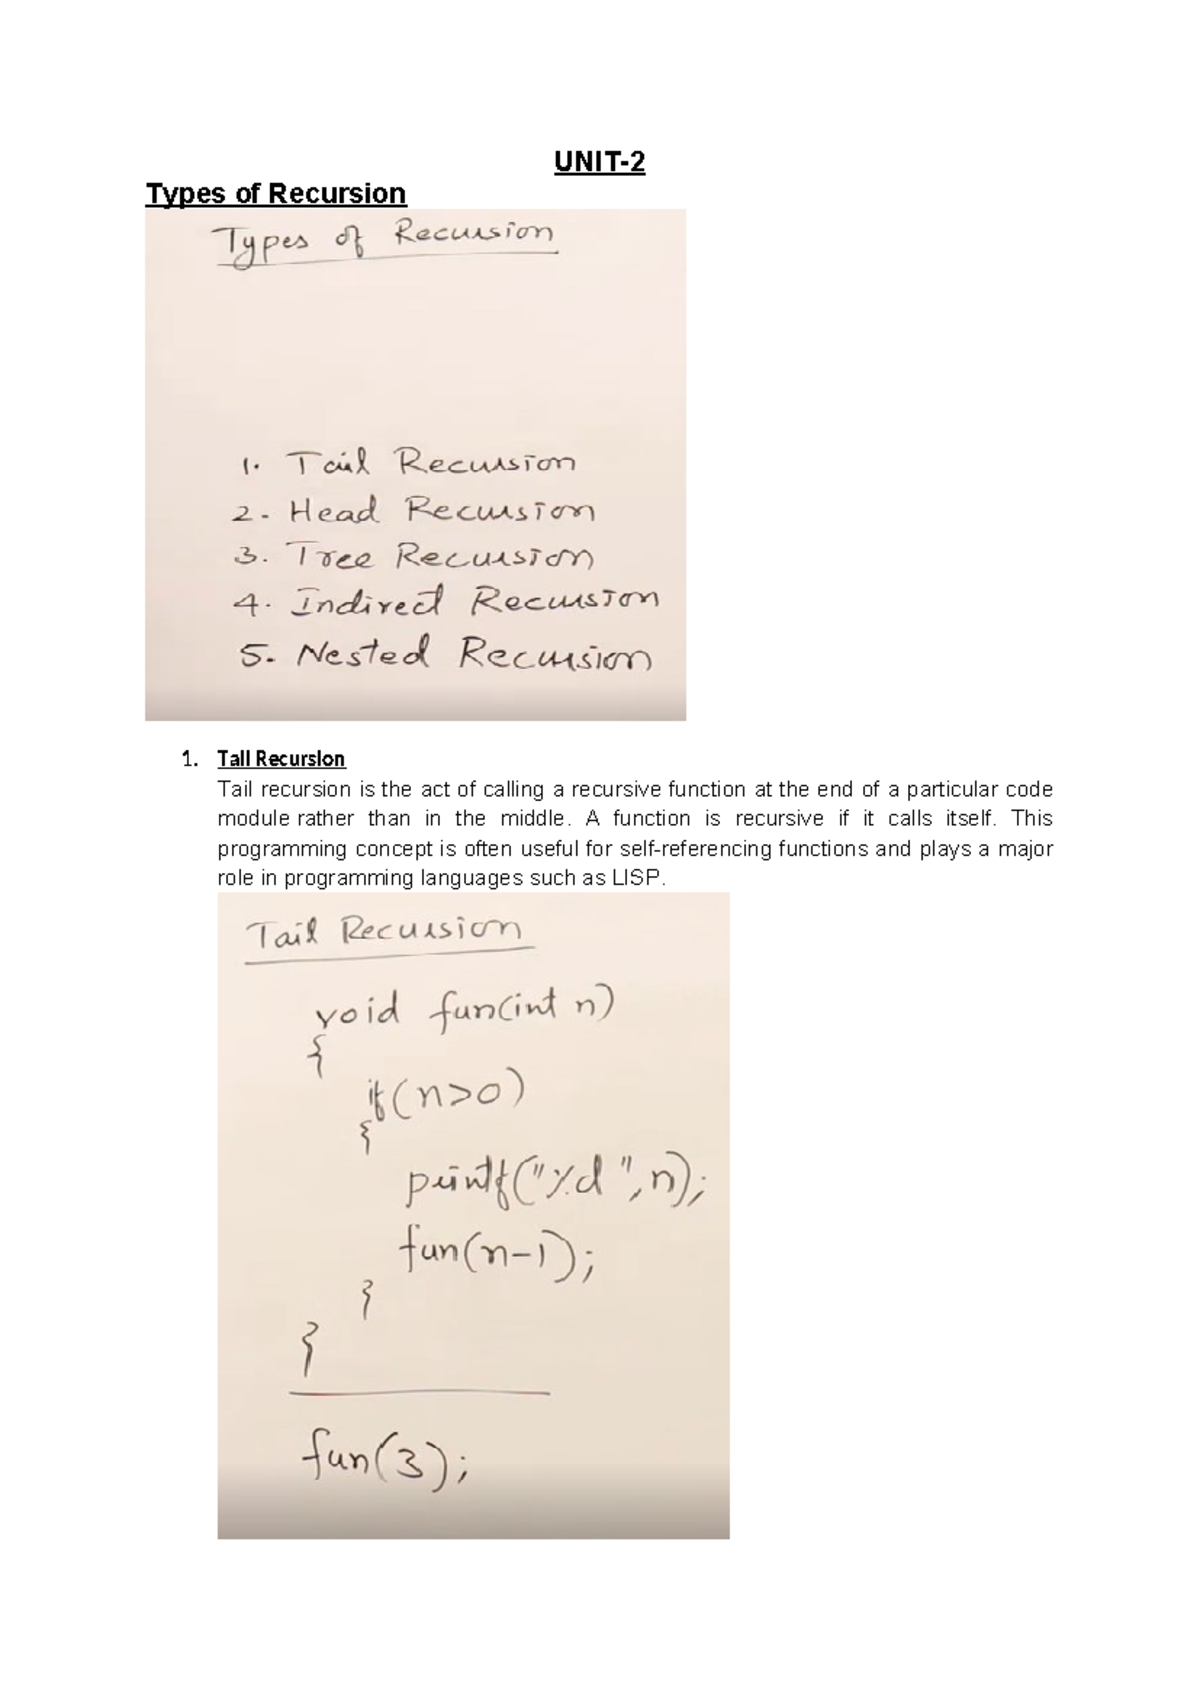 UNIT-2
Types of Recursion
Types of Recursion
1. Tail Recursion
2. Head Recursion
3. Tree Recursion
4. Indirect Recursion
5. Nested Recursion
1. Tail Recursion
Tail recursion is the act of calling a recursive function at the end of a particular code
module rather than in the middle. A function is recursive if it calls itself. This
programming concept is often useful for self-referencing functions and plays a major
role in programming languages such as LISP.
Tail Recursion
void fun(int n)
{
if(n>0)
{
printf("%d", n);
fun(n-1);
}
}
fun(3);